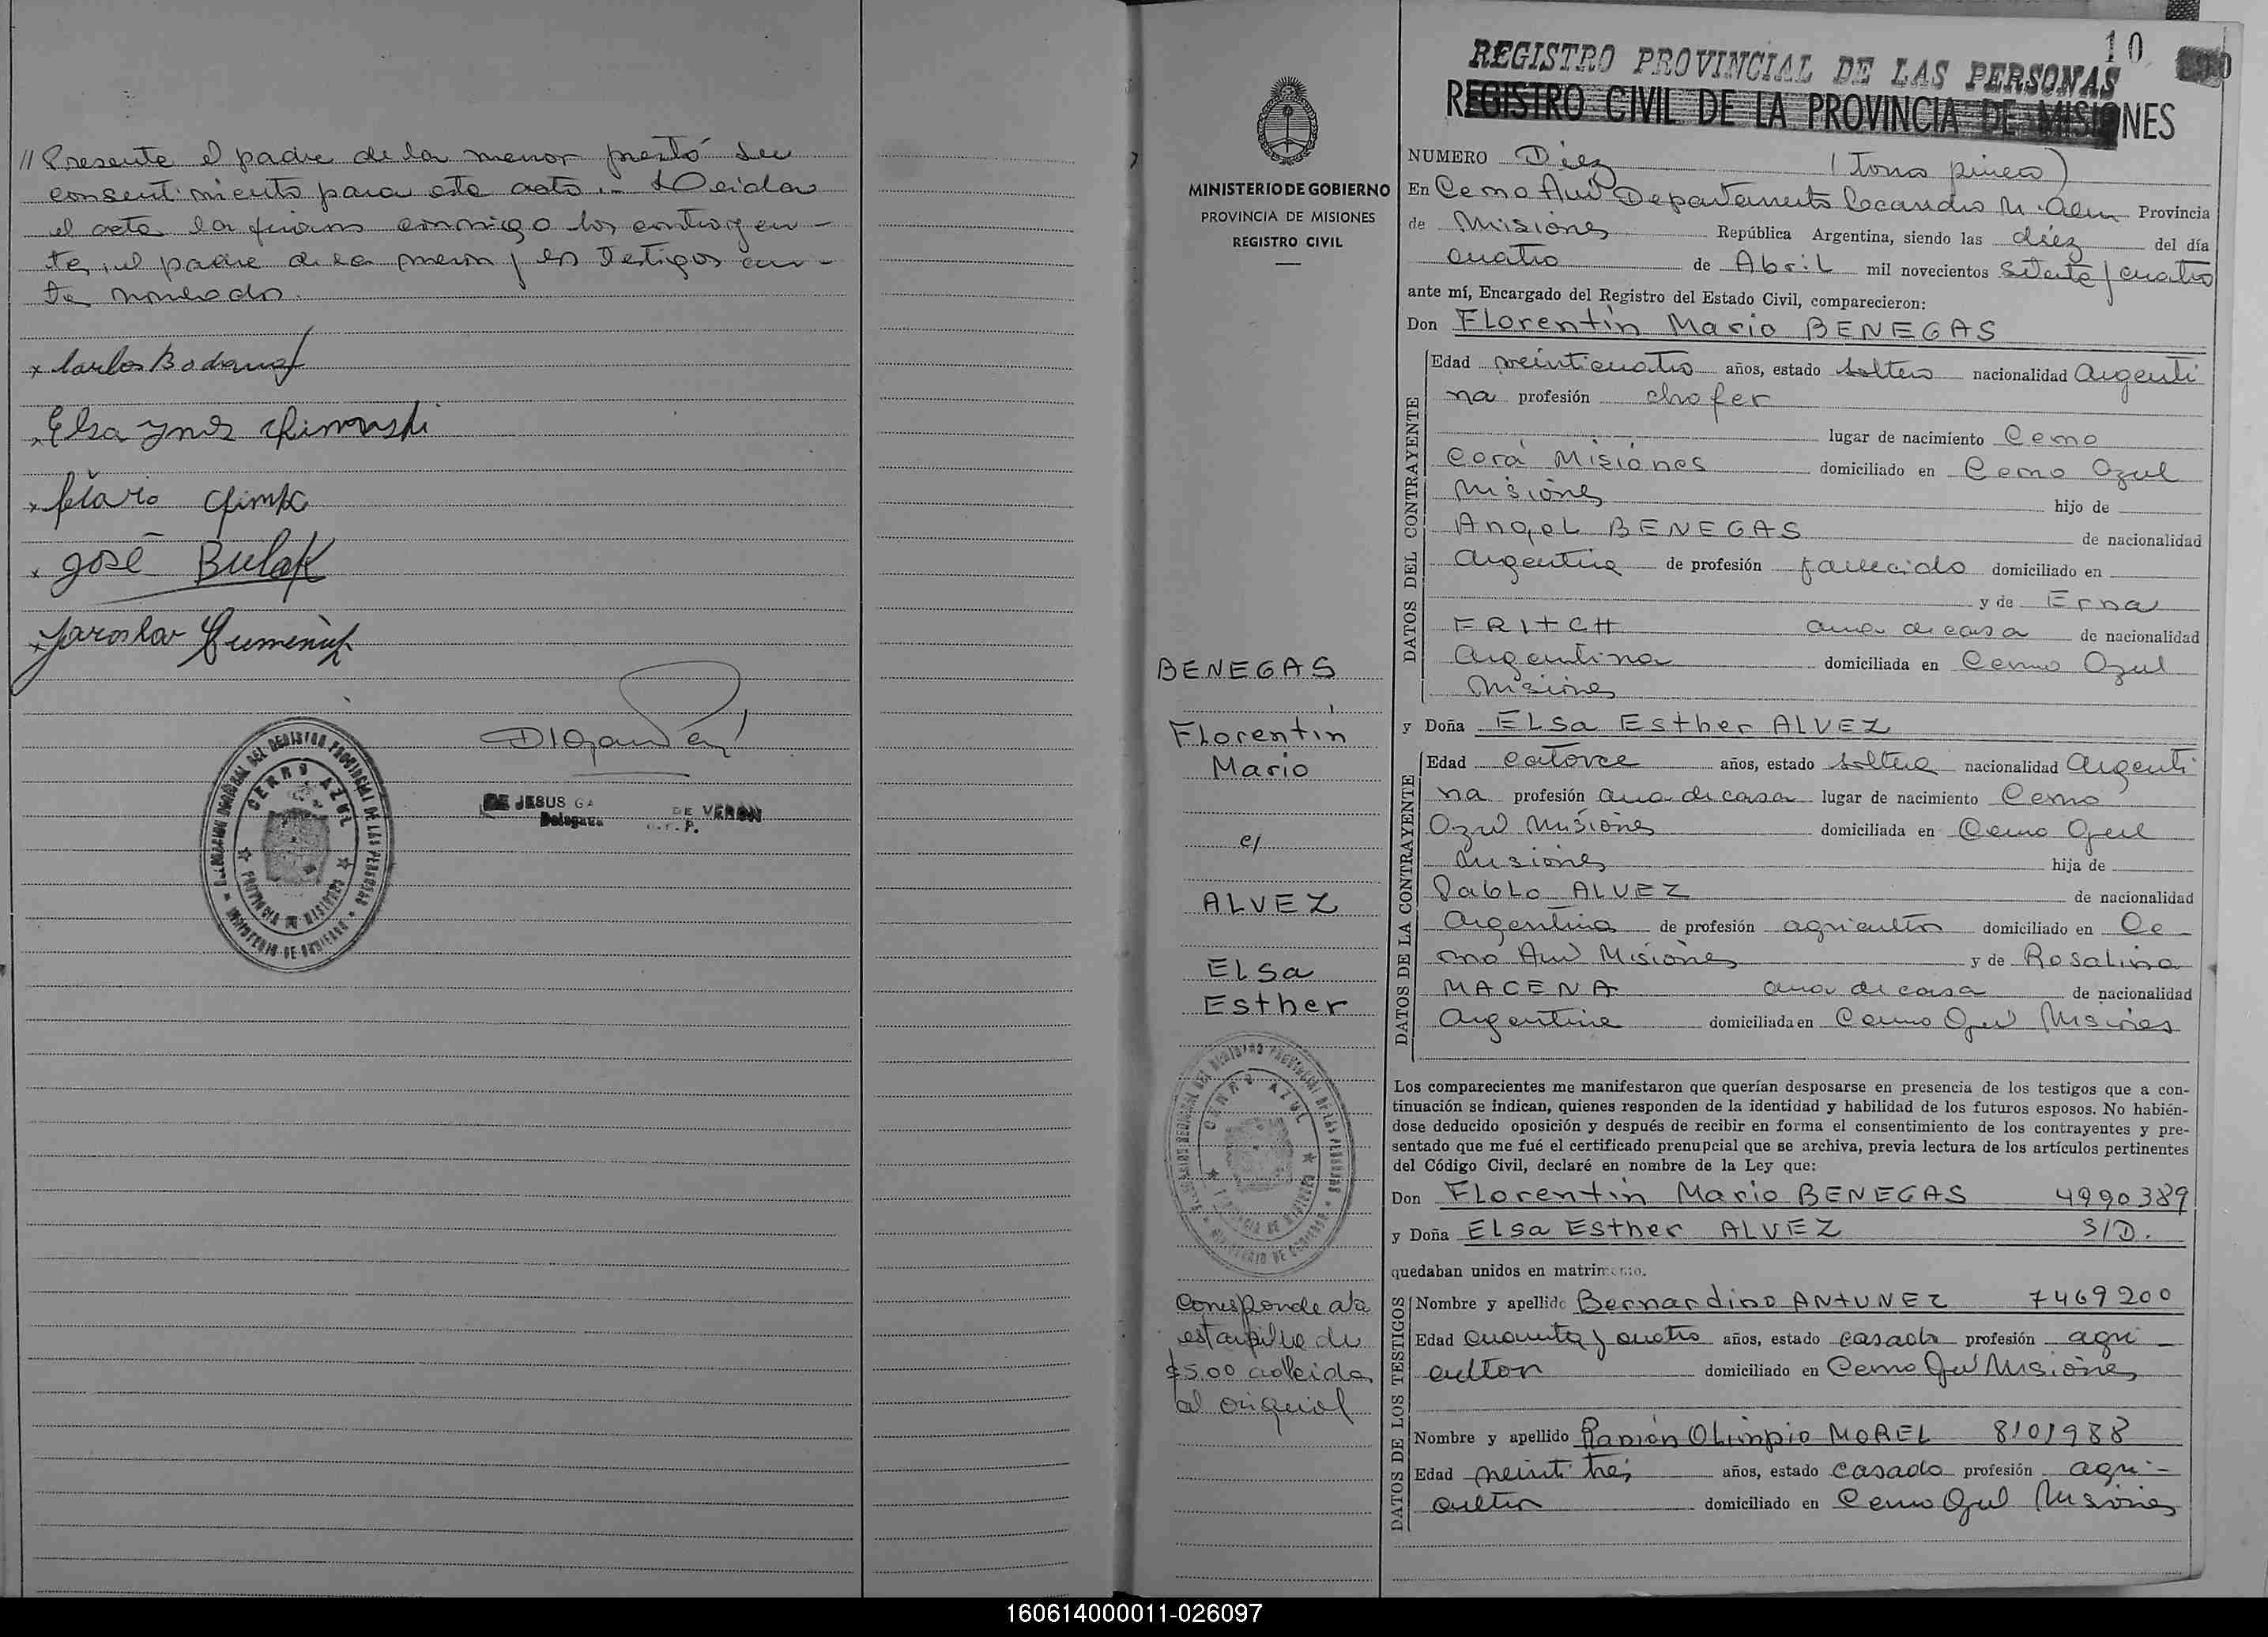 // Presente el padre de la menor prestó su
consentimiento para este acto.- Leida
el acta la firman conmigo los contrayen-
tes, el padre de la menor y los testigos an-
tes nombrados.
x Carlos Bodanof
x Elsa Ynes
x
x José Bulak
x Jaroslav
DELEGACION REGIONAL DEL REGISTRO PROVINCIAL DE LAS PERSONAS
CERRO AZUL
PROVINCIA DE MISIONES
MINISTERIO DE GOBIERNO
DE JESUS GA DE VERON
Delegada R.P.P.
MINISTERIO DE GOBIERNO
PROVINCIA DE MISIONES
REGISTRO CIVIL
BENEGAS
Florentín
Mario
c/
ALVEZ
ELsa
Esther
CERRO AZUL
Corresponde a la
estampilla de
$5.00 adherida
al original
10
REGISTRO PROVINCIAL DE LAS PERSONAS
REGISTRO CIVIL DE LA PROVINCIA DE MISIONES
NUMERO Diez (Tomo primero)
En Cerro Azul Departamento Leandro N. Alem Provincia
de Misiones República Argentina, siendo las diez del día
cuatro de Abril mil novecientos setenta y cuatro
ante mí, Encargado del Registro del Estado Civil, comparecieron:
Don FLorentín Mario BENEGAS
DATOS DEL CONTRAYENTE
Edad veinticuatro años, estado soltero nacionalidad Argenti
na profesión chofer
lugar de nacimiento Cerro
Corá Misiones domiciliado en Cerro Azul
Misiones hijo de
AngeL BENEGAS de nacionalidad
Argentina de profesión fallecido domiciliado en
y de Erna
FRITCH ama de casa de nacionalidad
Argentina domiciliada en Cerro Azul
Misiones
y Doña ELsa Esther ALVEZ
DATOS DE LA CONTRAYENTE
Edad catorce años, estado soltera nacionalidad Argenti
na profesión ama de casa lugar de nacimiento Cerro
Azul Misiones domiciliada en Cerro Azul
Misiones hija de
PabLo ALVEZ de nacionalidad
Argentina de profesión agricultor domiciliado en Ce-
rro Azul Misiones y de RosaLina
MACENA ama de casa de nacionalidad
Argentina domiciliada en Cerro Azul Misiones
Los comparecientes me manifestaron que querían desposarse en presencia de los testigos que a con-
tinuación se indican, quienes responden de la identidad y habilidad de los futuros esposos. No habién-
dose deducido oposición y después de recibir en forma el consentimiento de los contrayentes y pre-
sentado que me fué el certificado prenupcial que se archiva, previa lectura de los artículos pertinentes
del Código Civil, declaré en nombre de la Ley que:
Don FLorentín Mario BENEGAS 4990389
y Doña ELsa Esther ALVEZ S/D.
quedaban unidos en matrimonio.
DATOS DE LOS TESTIGOS
Nombre y apellido Bernardino ANTUNEZ 7469200
Edad cuarenta y cuatro años, estado casado profesión agri-
cultor domiciliado en Cerro Azul Misiones
Nombre y apellido Ramón OLimpio MOREL 8101988
Edad veintitrés años, estado casado profesión agri-
cultor domiciliado en Cerro Azul Misiones
160614000011-026097